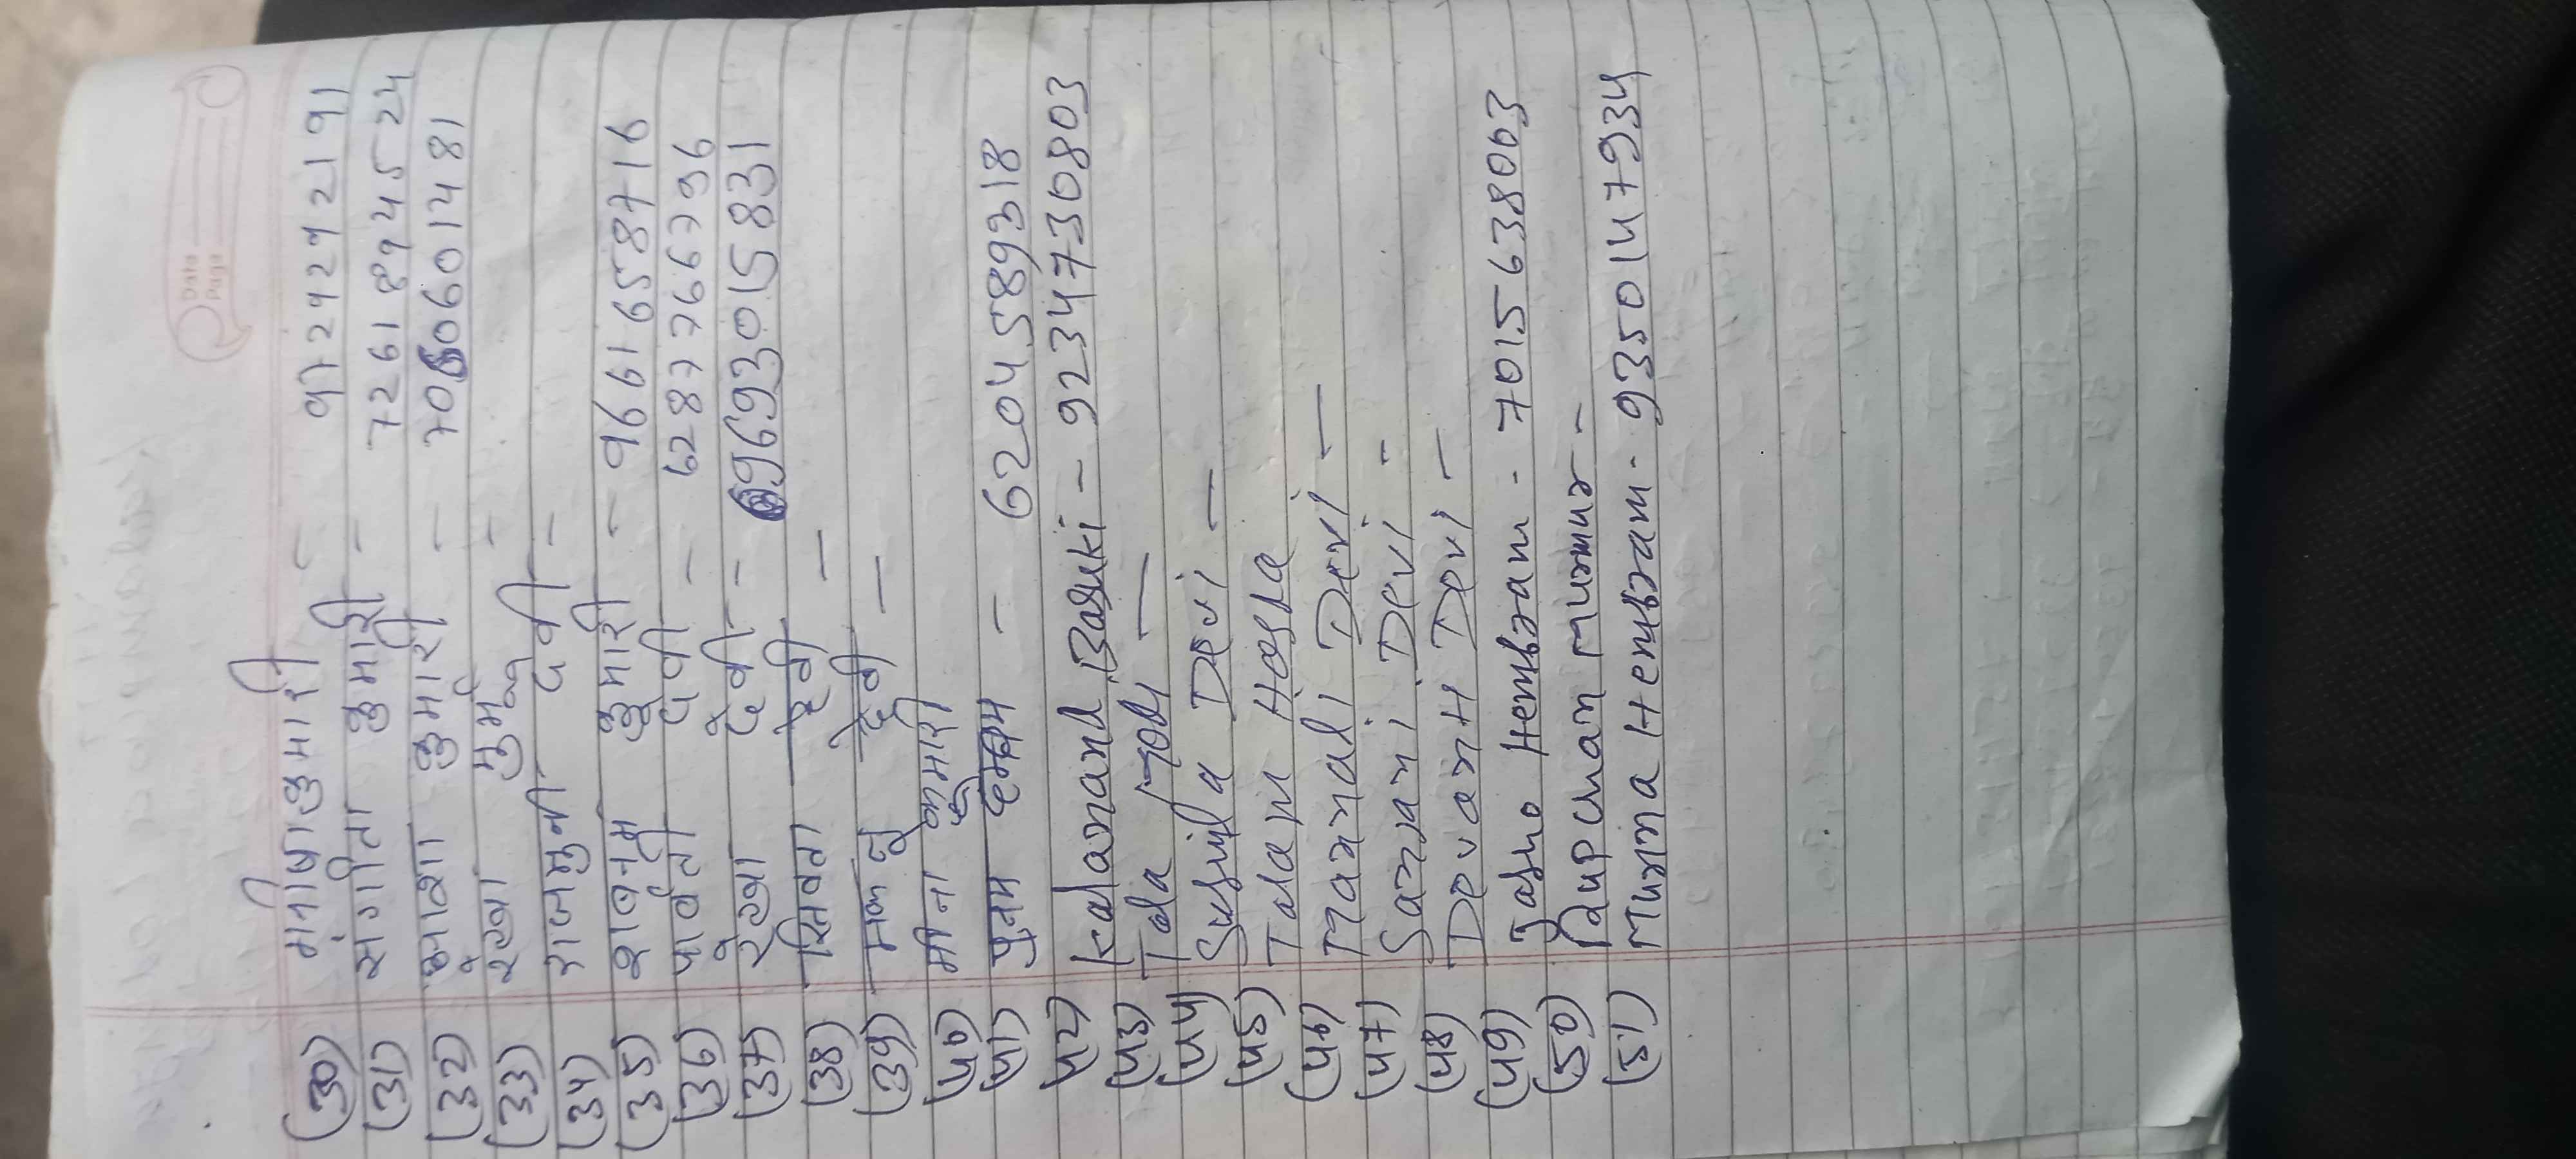 Data
Page
(30) मनीषा कुमारी - 9729292191
(31) संगीता कुमारी - 7261894524
(32) आशा कुमारी - 7050601481
(33) रेखा मुर्मू -
(34) राजमुनी देवी -
(35) शबनम कुमारी - 9661658716
(36) पार्वती देवी - 6287766796
(37) रेखा देवी - 6969301583 1
(38) सिवता देवी -
(39) मकलु देवी -
(40) मीना कुमारी
(41) पुनम - 6204589318
(42) Kalanand Baski - 9234730803
(43) Tala -
(44) Sushila Devi -
(45) Hasda
(46) Devi -
(47) Sanjani Devi -
(48) Devi -
(49) Jasho Hembram - 7015638003
(50) Rupchan Murmur -
(51) Munna Hembram - 9350147934